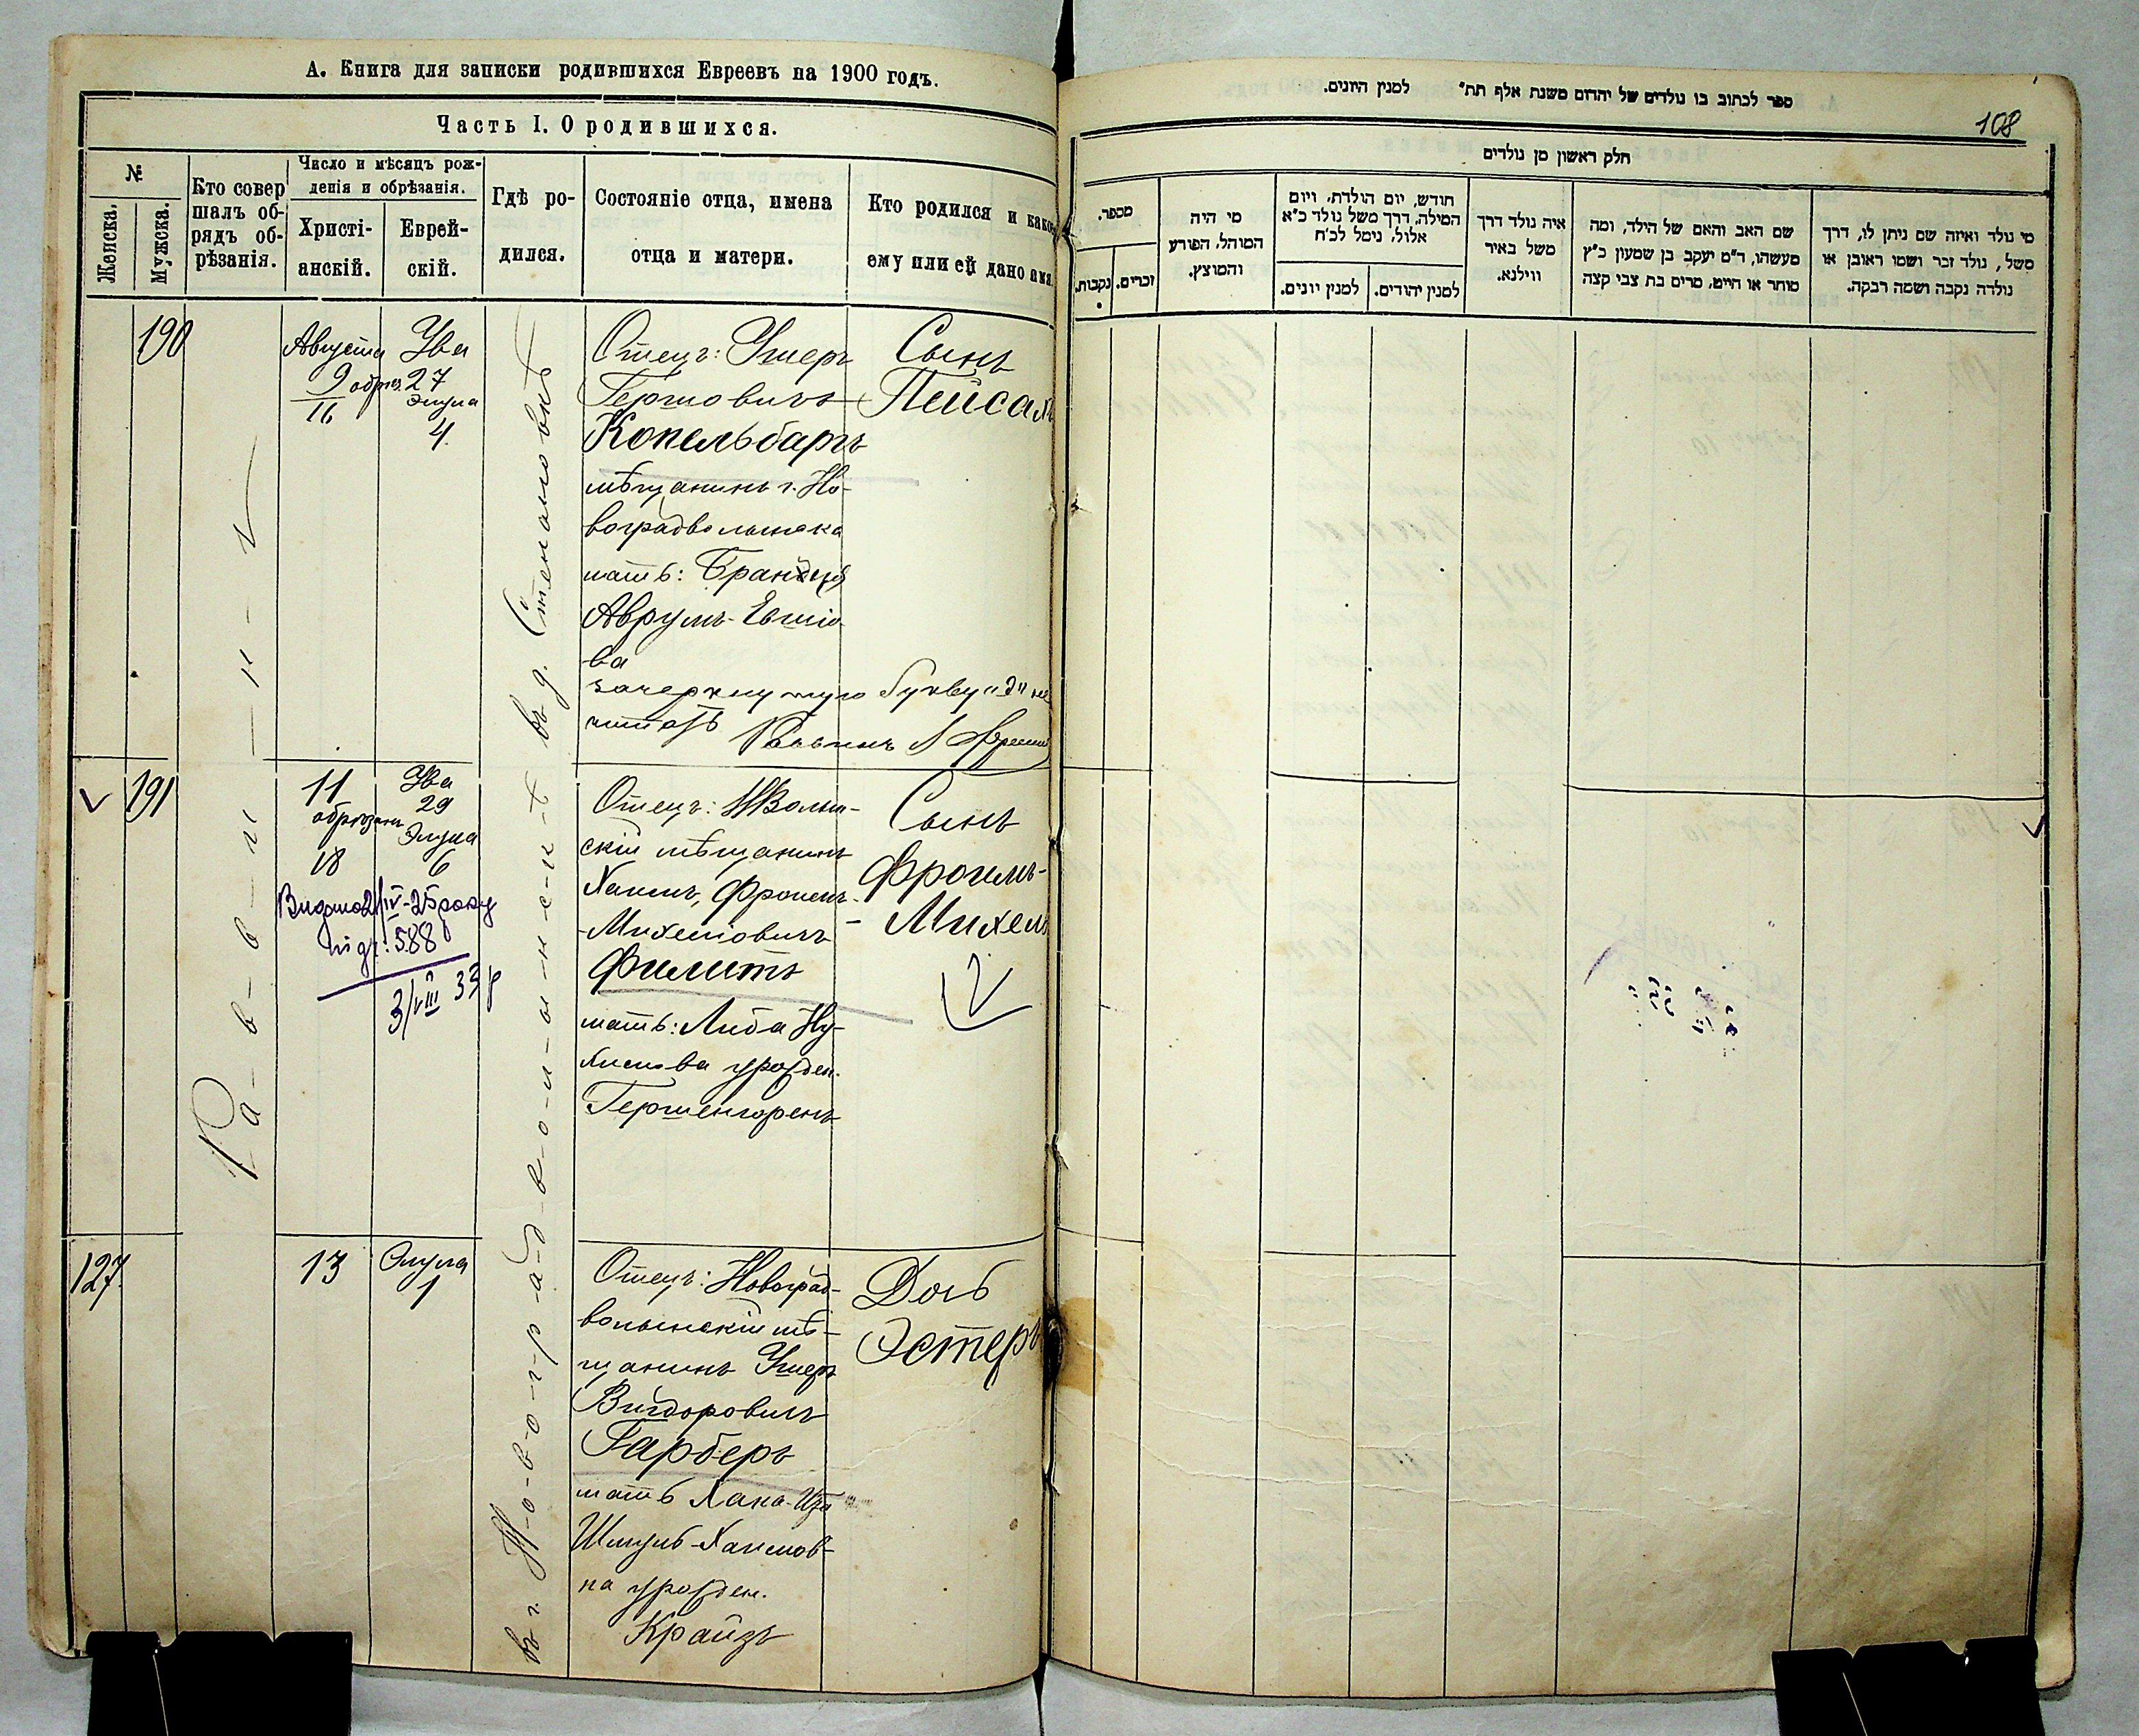 А. Книга для записки родившихся Евреевъ на 1900 годъ.
Часть I. О родившихся.
№
Женска.
Мужска.
Кто совер
шалъ об-
рядъ об-
рѣзанія.
Число и мѣсяцъ рож-
денія и обрѣзанія.
Христі-
анскій.
Еврей-
скій.
Гдѣ ро-
дился.
Состояніе отца, имена
отца и матери.
Кто родился и како
ему или ей дано имя.
Ра-в-в-и-н-ъ
въ г. Н-о-в-о-г-р-а-д-в-о-л-ы-н-с-к-ѣ
въ д. Степановкѣ
190
Августа
9 обрѣз.
16
Ува
27
Элула
4
Отецъ: Ушеръ
Гершовичъ
Копельбартъ
мѣщанинъ г. Но-
воградволынска
мать: Брандця
Аврумъ-
ва
зачеркнутую букву "д" не
читать Раввинъ
Сынъ
Пейсахъ
191
11
обрѣзанъ
18
Ува
29
Элула
6
Видано 21/IV-25 року
під : 588
3/VIII 33 р
Отецъ: НВолын-
скій мѣщанинъ
Хаимъ, Фроимъ-
-Михелiовичъ
Филитъ
мать: Люба Ну-
химова урожден.
Гершенгоренъ
Сынъ
Фроимъ-
- Михель
127.
13
Элула
1
Отецъ: Новоград-
волынскій мѣ-
щанинъ Ушеръ
Вигдоровичъ
Гарберъ
мать Хана-Ита
Шмуль-Хаимов-
на урожден.
Крайзъ
Дочь
Эстеръ
ספר לכתוב בו נולדים של יהדום משנת אלף תת" למנין היונים.
108
חלק ראשון מן נולדים
מספר.
נקבות.
זכרים.
מי היה
המוהל, הפורע
והמוצץ.
חודש, יום הולדת, ויום
המילה, דרך משל נולד כ"א
אלול, נימל לכ"ח
למנין יונים.
למנין יהודים.
איה נולד דרך
משל באיר
ווילנא.
שם האב והאם של הילד, ומה
מעשהו, ד"מ יעקב בן שמעון כ"ץ
סוחר או חייט, מרים בת צבי קצה
מי נולד ואיזה שם ניתן לו, דרך
משל, נולד זכר ושמו ראובן או
נולדה נקבה ושמה רבקה.